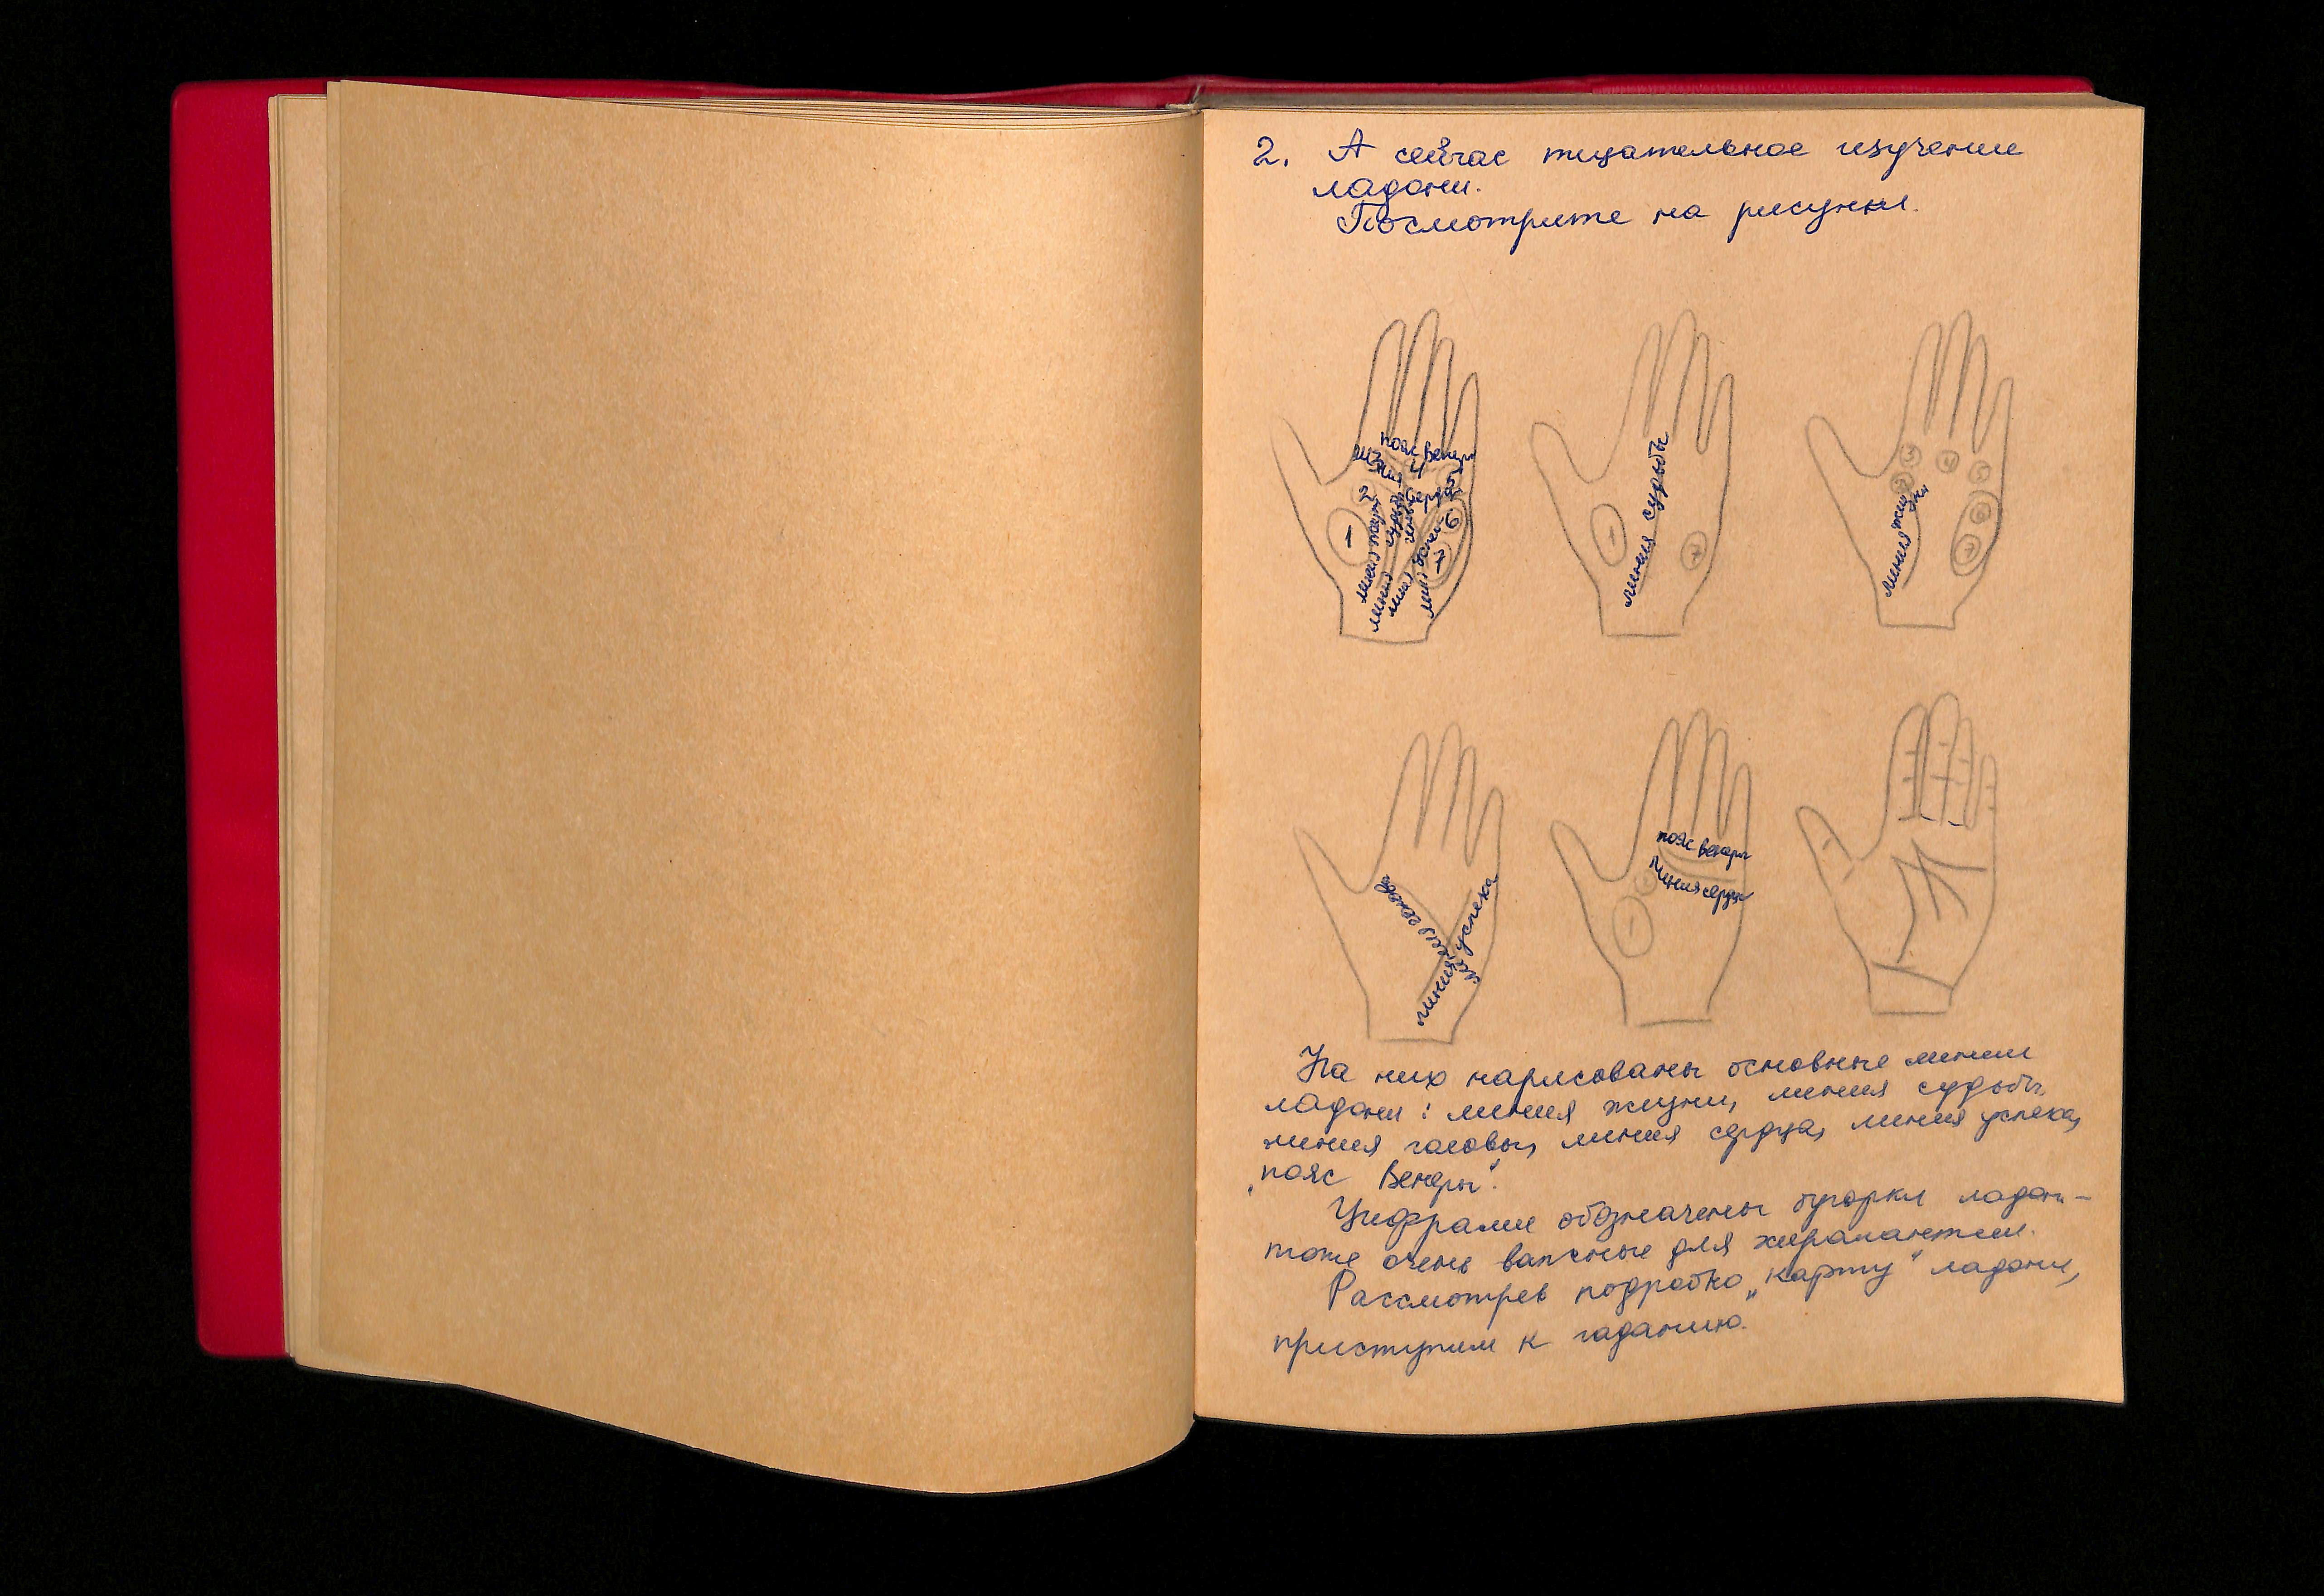 2. А сейчас тщательное изучение
ладони.
Посмотрите на рисунки.
пояс Венеры
2
4
1
6
7
линия
линия
линия судьбы
1
7
3
4
5
2
6
7
линия жизни
линия головы
линия успеха
пояс Венеры
Линия сердца
1
На них нарисованы основные линии
ладони: линия жизни, линия судьбы,
линия головы, линия сердца, линия успеха,
„пояс Венеры".
Цифрами обозначены бугорки ладони -
тоже очень важные для хиромантии.
Рассмотрев подробно „карту" ладони,
приступим к гаданию.